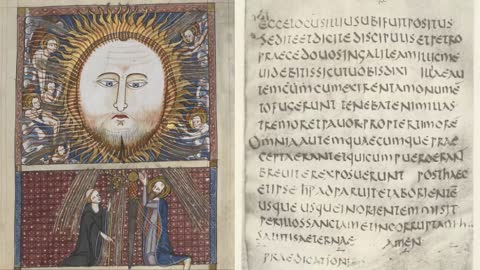 ECCELOCUSILLIUSUBIFUITPOSITUS
SEDITEETDICITEDISCIPULISETPETRO
PRAECEDOUOSINGALILEAMILLICME
UIDEBITISSICUTUOBISDIXI ILLAEAU
TEMCUMCUMEXIRENTAMONUMEN
TOFUGERUNT TENEBATENIMILLAS
TREMORETPAUORPROPTERTIMORE
OMNIAAUTEMQUAECUMQUEPRAE
CEPTAERANTETQUICUMPUEROERAN
BREUITEREXPOSUERUNT POSTHAEC
ETIPSE ADPARUITETABORIENTE
USQUEUSQUEINORIENTEMMISIT
PERILLOSSANCTAMETINCORRUPTAM
SALUTISAETERNAE AMEN
PRAEDICATIONI